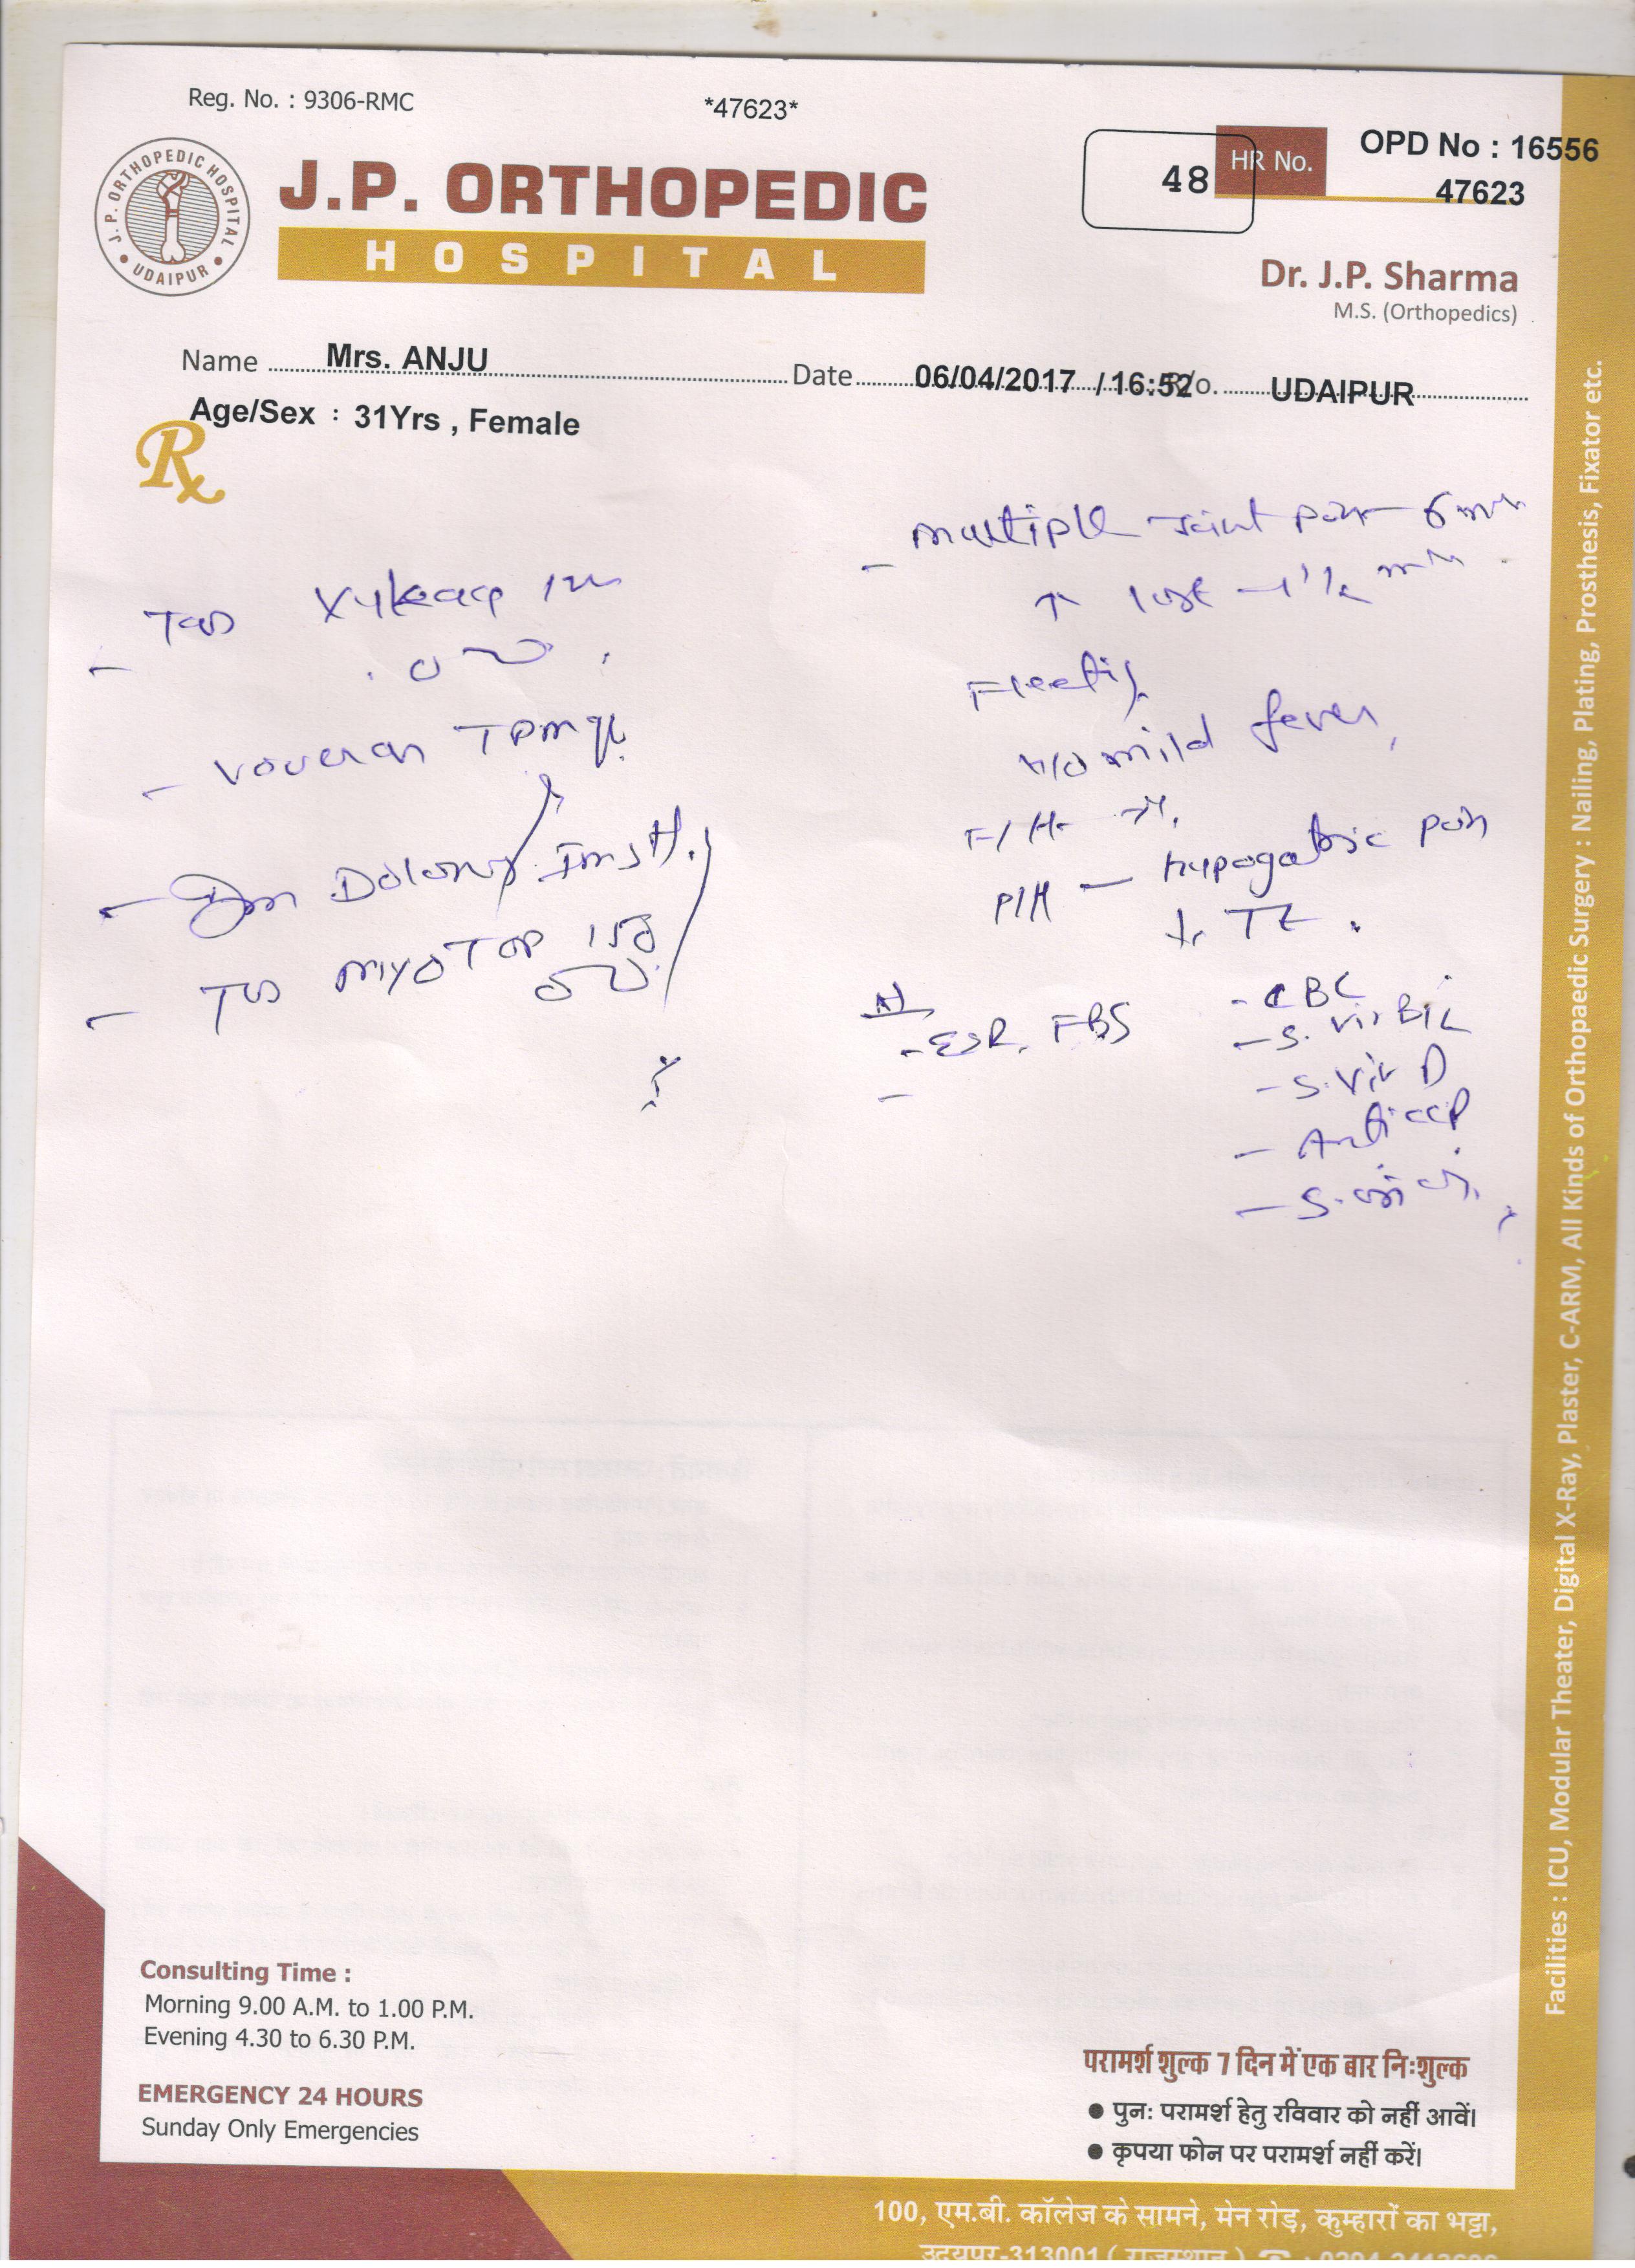 Reg. No. : 9306-RMC
*47623*
48
HR No.
OPD No : 16556
47623
J. P. ORTHOPEDIC HOSPITAL
UDAIPUR
J.P. ORTHOPEDIC
HOSPITAL
Dr. J.P. Sharma
M.S. (Orthopedics)
Name Mrs. ANJU Date 06/04/2017 / 16:52 R/o. UDAIPUR
Age/Sex : 31Yrs , Female
Rx
- multiple Joint pain 6
↑ last 1½
H/o mild fever,
F/H-
P/H - pain
- ESR, FBS
- CBC
- S. Vit B12
- S. Vit D
- Anti CCP
- S.
- Tab
- Voveran
-
- Tab MYOTOP 150
Facilities : ICU, Modular Theater, Digital X-Ray, Plaster, C-ARM, All Kinds of Orthopaedic Surgery : Nailing, Plating, Prosthesis, Fixator etc.
Consulting Time :
Morning 9.00 A.M. to 1.00 P.M.
Evening 4.30 to 6.30 P.M.
EMERGENCY 24 HOURS
Sunday Only Emergencies
परामर्श शुल्क 7 दिन में एक बार निःशुल्क
● पुनः परामर्श हेतु रविवार को नहीं आवें।
● कृपया फोन पर परामर्श नहीं करें।
100, एम.बी. कॉलेज के सामने, मेन रोड़, कुम्हारों का भट्टा,
उदयपुर-313001 ( राजस्थान )